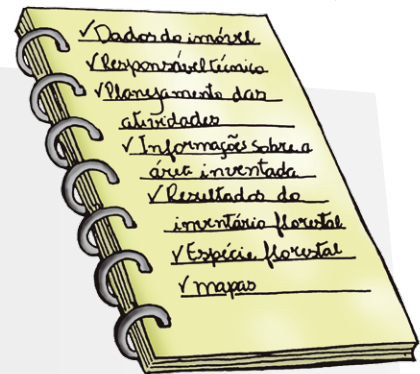 ✓Dados do imóvel
✓Responsável técnico
✓Planejamento das
atividades
✓Informações sobre a
área inventada
✓Resultados do
inventário florestal
✓Espécie florestal
✓mapas